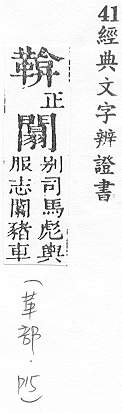 41經典文字辨證書
正
闒
別司馬彪輿
服志闒豬車
(革部·P15)